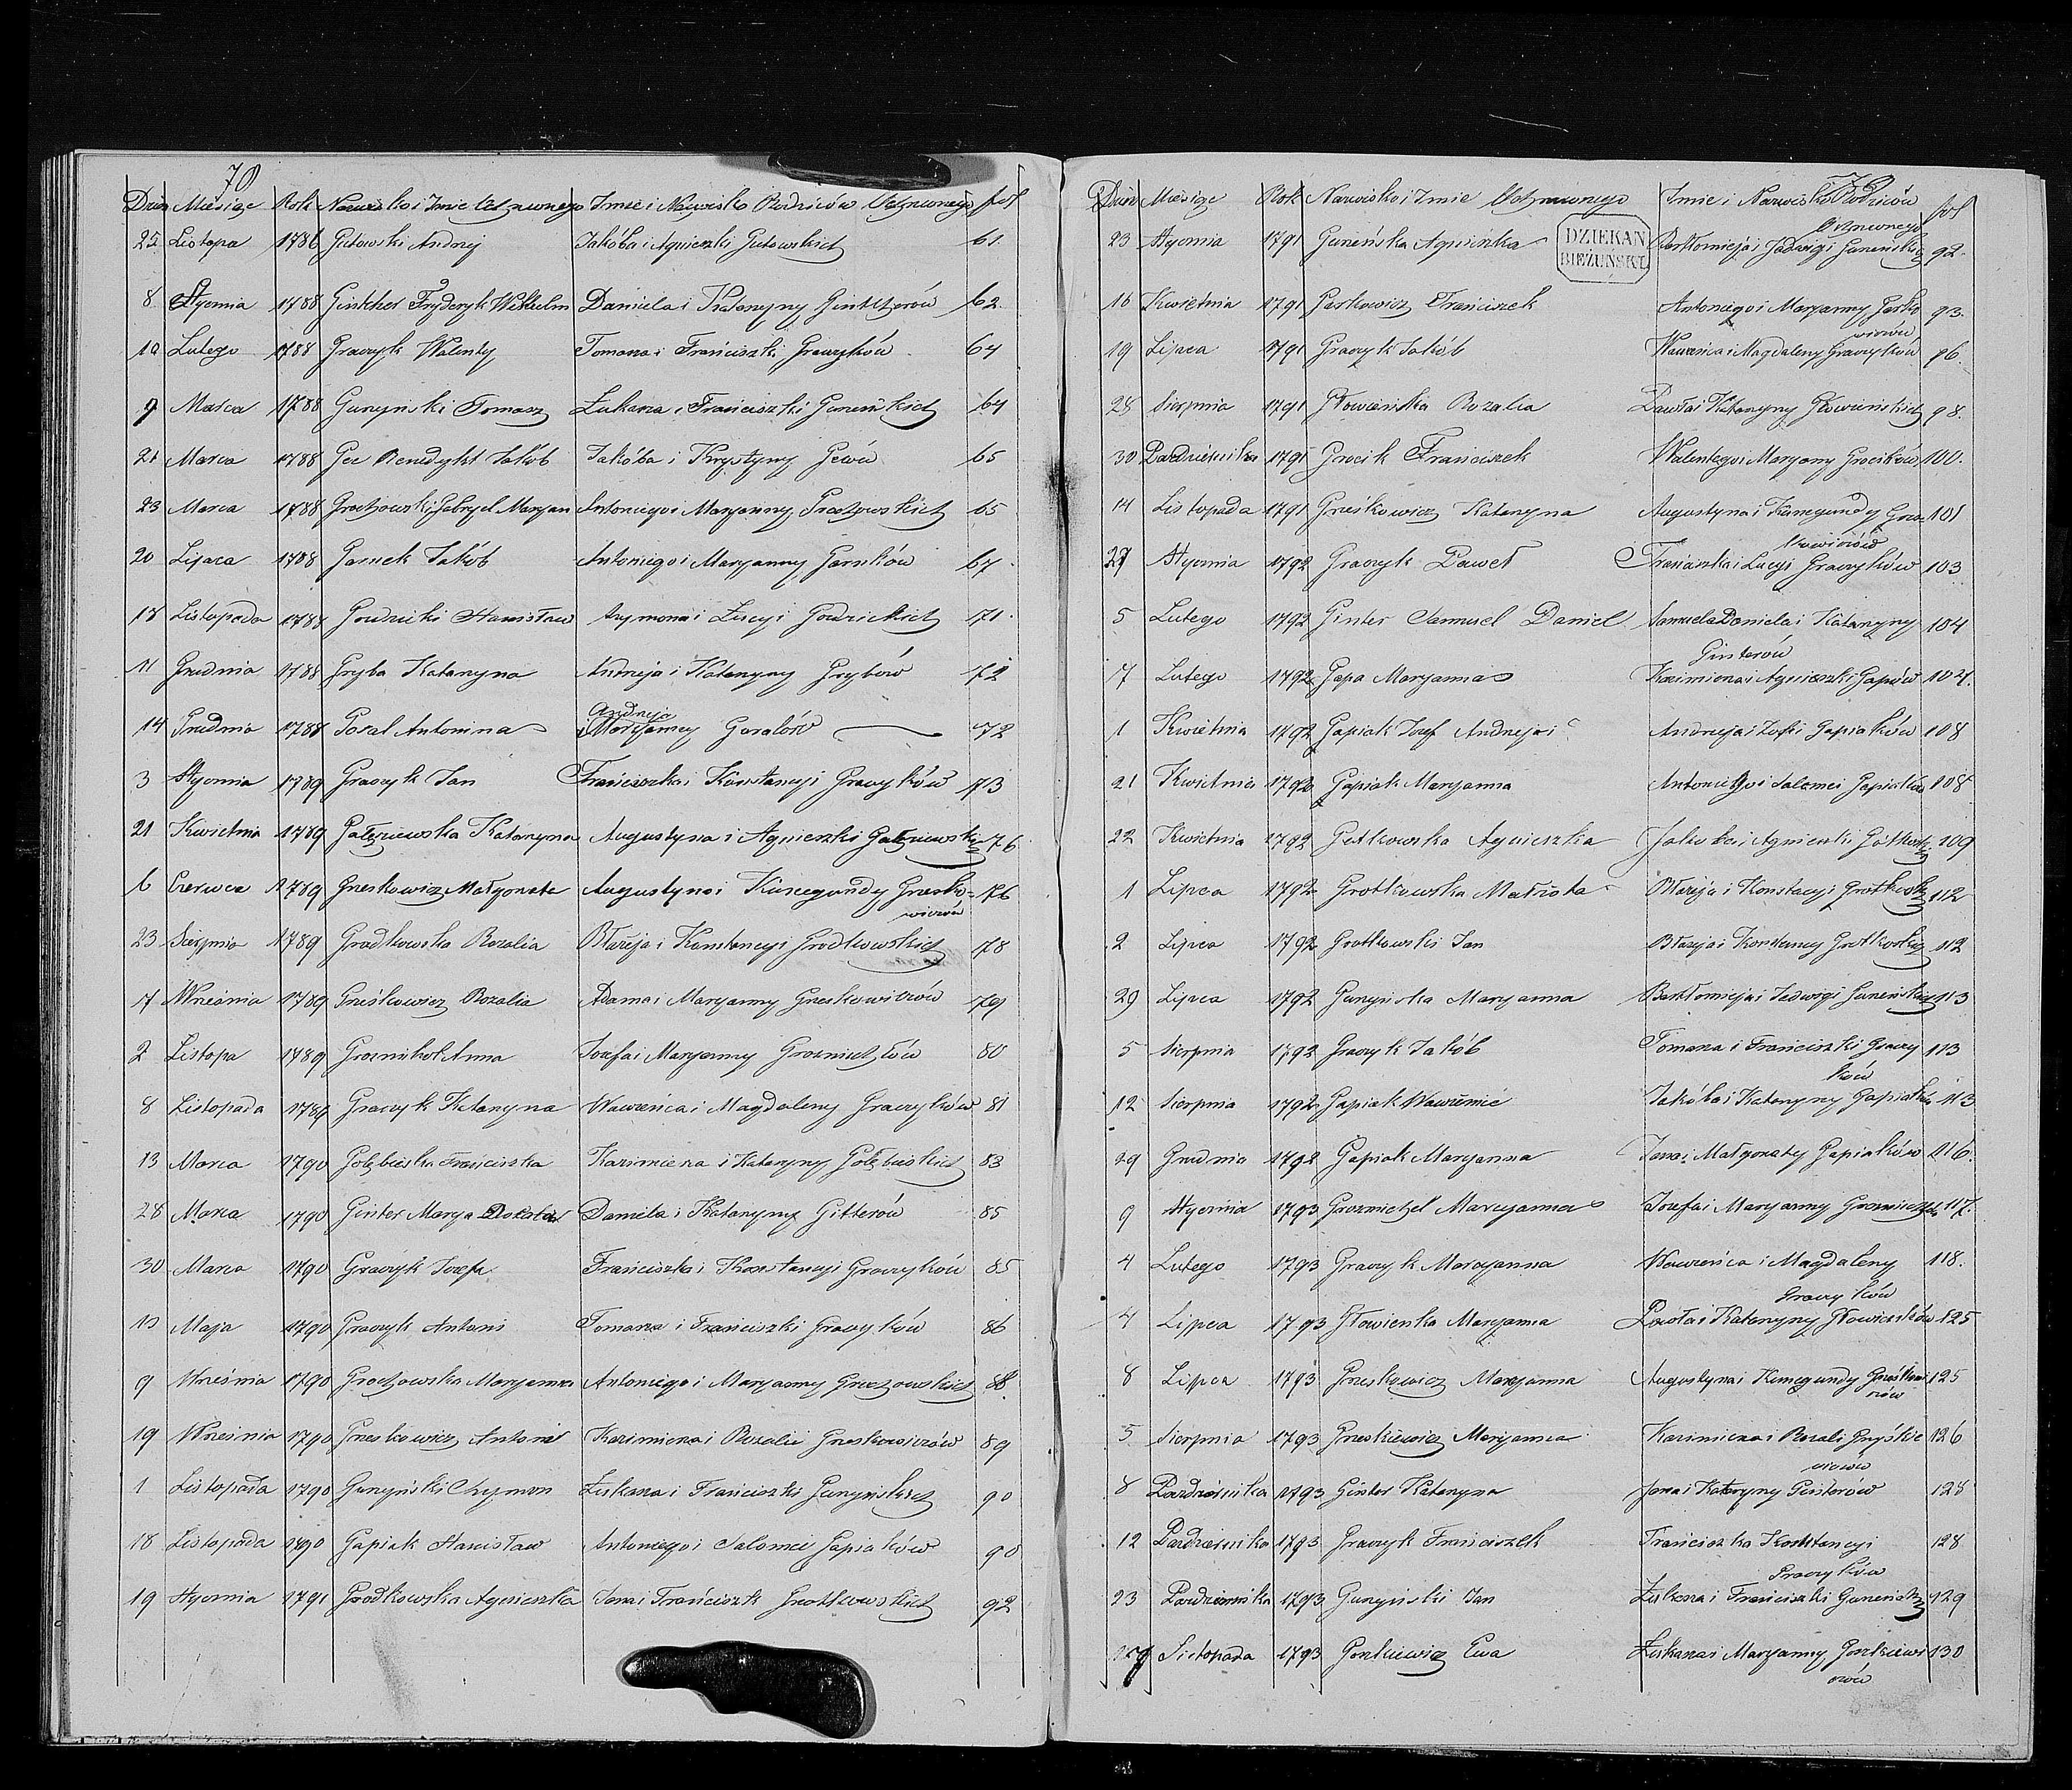 70
Dzień Miesiąc Rok Nazwisko i Imie Ochrzczonego Imie i Nazwisko Rodziców Ochrzczonego fol
25 Listopa 1786 Gutowski Andrzej Jakóba i Agnieszki Gutowskich 61
8 Stycznia 1788 Fryderyk Wilhelm Daniela i Katarzyny 62
10 Lutego 1788 Graczyk Walenty Tomasza i Franciszki Graczyków 64
9 Marca 1788 Guzyński Tomasz Łukasza i Franciszki 64
21 Marca 1788 Benedykt Jakób Jakóba i Krystyny 65
23 Marca 1788 Grochowski Gabryel Maryan Antoniego i Maryanny Grochowskich 65
20 Lipca 1788 Garnek Jakób Antoniego i Maryanny Garnków 67
18 Listopada 1788 Goudzicki Stanisław Szymona i Łucyi 71
11 Grudnia 1788 Gryba Katarzyna Andrzeja i Katarzyny Grybów 72
14 Grudnia 1788 Goral Antonina Andrzeja i Maryanny Goralów 72
3 Stycznia 1789 Graczyk Jan Franciszka i Konstancyi Graczyków 73
21 Kwietnia 1789 Katarzyna Augustyna i Agnieszki 76
6 Czerwca 1789 Greskowicz Małgorzata Augustyna i Kunegundy Gresko-
wiczów 76
23 Sierpnia 1789 Grodkowska Rozalia Błażeja i Konstancyi Grodkowskich 78
7 Września 1789 Greśkowicz Rozalia Adama i Maryanny Greskowiczów 79
2 Listopa 1789 Anna Józefa i Maryanny 80
8 Listopada 1789 Graczyk Katarzyna Wawrzeńca i Magdaleny Graczyków 81
13 Marca 1790 Gołębieska Franciszka Kazimierza i Katarzyny Gołębieskich 83
28 Marca 1790 Ginter Marya Daniela i Katarzyny Gitterów 85
30 Marca 1790 Graczyk Józefa Franciszka i Konstancyi Graczyków 85
10 Maja 1790 Graczyk Antoni Tomasza i Franciszki Graczyków 86
9 Września 1790 Grochowska Maryanna Antoniego i Maryanny Grochowskich 88
19 Września 1790 Greskowicz Antoni Kazimierza i Rozalii Greskowiczów 89
1 Listopada 1790 Guzyński Szymon Łukasza i Franciszki Guzyńskich 90
18 Listopada 1790 Gapiak Stanisław Antoniego i Salomei Gapiaków 90
19 Stycznia 1791 Grodkowska Agnieszka Jana i Franciszk Grotkowskich 92
Dzień Miesiąc Rok Nazwisko i Imie Ochrzczonego Imie i Nazwisko Rodziców
Ochrzczonego fol
DZIEKAN
BIEŻUŃSKI.
23 Stycznia 1791 Agnieszka Bartłomieja i Jadwigi 92
16 Kwietnia 1791 Franciszek Antoniego i Maryanny 93.
19 Lipca 1791 Graczyk Jakób Wawrzeńca i Magdaleny Graczyków 96.
28 Sierpnia 1791 Głowieńska Rozalia Pawła i Katarzyny Głowieńskich 98.
30 Października 1791 Grocik Franciszek Walentego i Maryany Grocików 100.
14 Listopada 1791 Greśkowicz Katarzyna Augustyna i Kunegundy Gres-
kowiczów 101
27 Stycznia 1792 Graczyk Paweł Franciszka i Łucyi Graczyków 103
5 Lutego 1792 Ginter Samuel Daniel Samuela Daniela i Katarzyny
Ginterów 104
7 Lutego 1792 Gapa Maryanna Kazimierza i Agnieszki Gapów 104.
1 Kwietnia 1792 Gapiak Józef Andrzeja i Andrzeja i Zofii Gapiaków 108
21 Kwietnia 1792 Gapiak Maryanna Antoniego i Salomei Gapiaków 108
22 Kwietnia 1792 Gotkowska Agnieszka Jakuba i Agnieszki 109
1 Lipca 1792 Grotkowska Błażeja i Konstacyi 112
2 Lipca 1792 Grotkowski Jan Błażeja i Konstancy 112
29 Lipca 1792 Guzyńska Maryanna Bartłomieja i Jadwigi 113
5 Sierpnia 1792 Graczyk Jakób Tomasza i Franciszki Graczy
ków 113
12 Sierpnia 1792 Gapiak Wawrzenic Jakóba i Katarzyny Gapiaków 113
29 Grudnia 1792 Gapiak Maryanna Jana i Małgorzaty Gapiaków 116.
9 Stycznia 1793 Grozmichel Maryanna Józefa i Maryanny 117.
4 Lutego 1793 Graczyk Maryanna Wawrzeńca i Magdaleny
Graczyków 118.
4 Lipca 1793 Głowienka Maryanna Pawła i Katarzyny 125
8 Lipca 1793 Greskowicz Maryanna Augustyna i Kunegundy 125
5 Sierpnia 1793 Greskiewicz Maryanna Kazimierza i Rozali 126
8 Października 1793 Ginter Katarzyna Jana i Katarzyny Ginterów 128
12 Października 1793 Graczyk Franciszek Franciszka Konstancyi
Graczyków 128
23 Października 1793 Guzyński Jan Łukasza i Franciszki 129
Listopada 1793 Ewa Łukasza i Maryanny 130